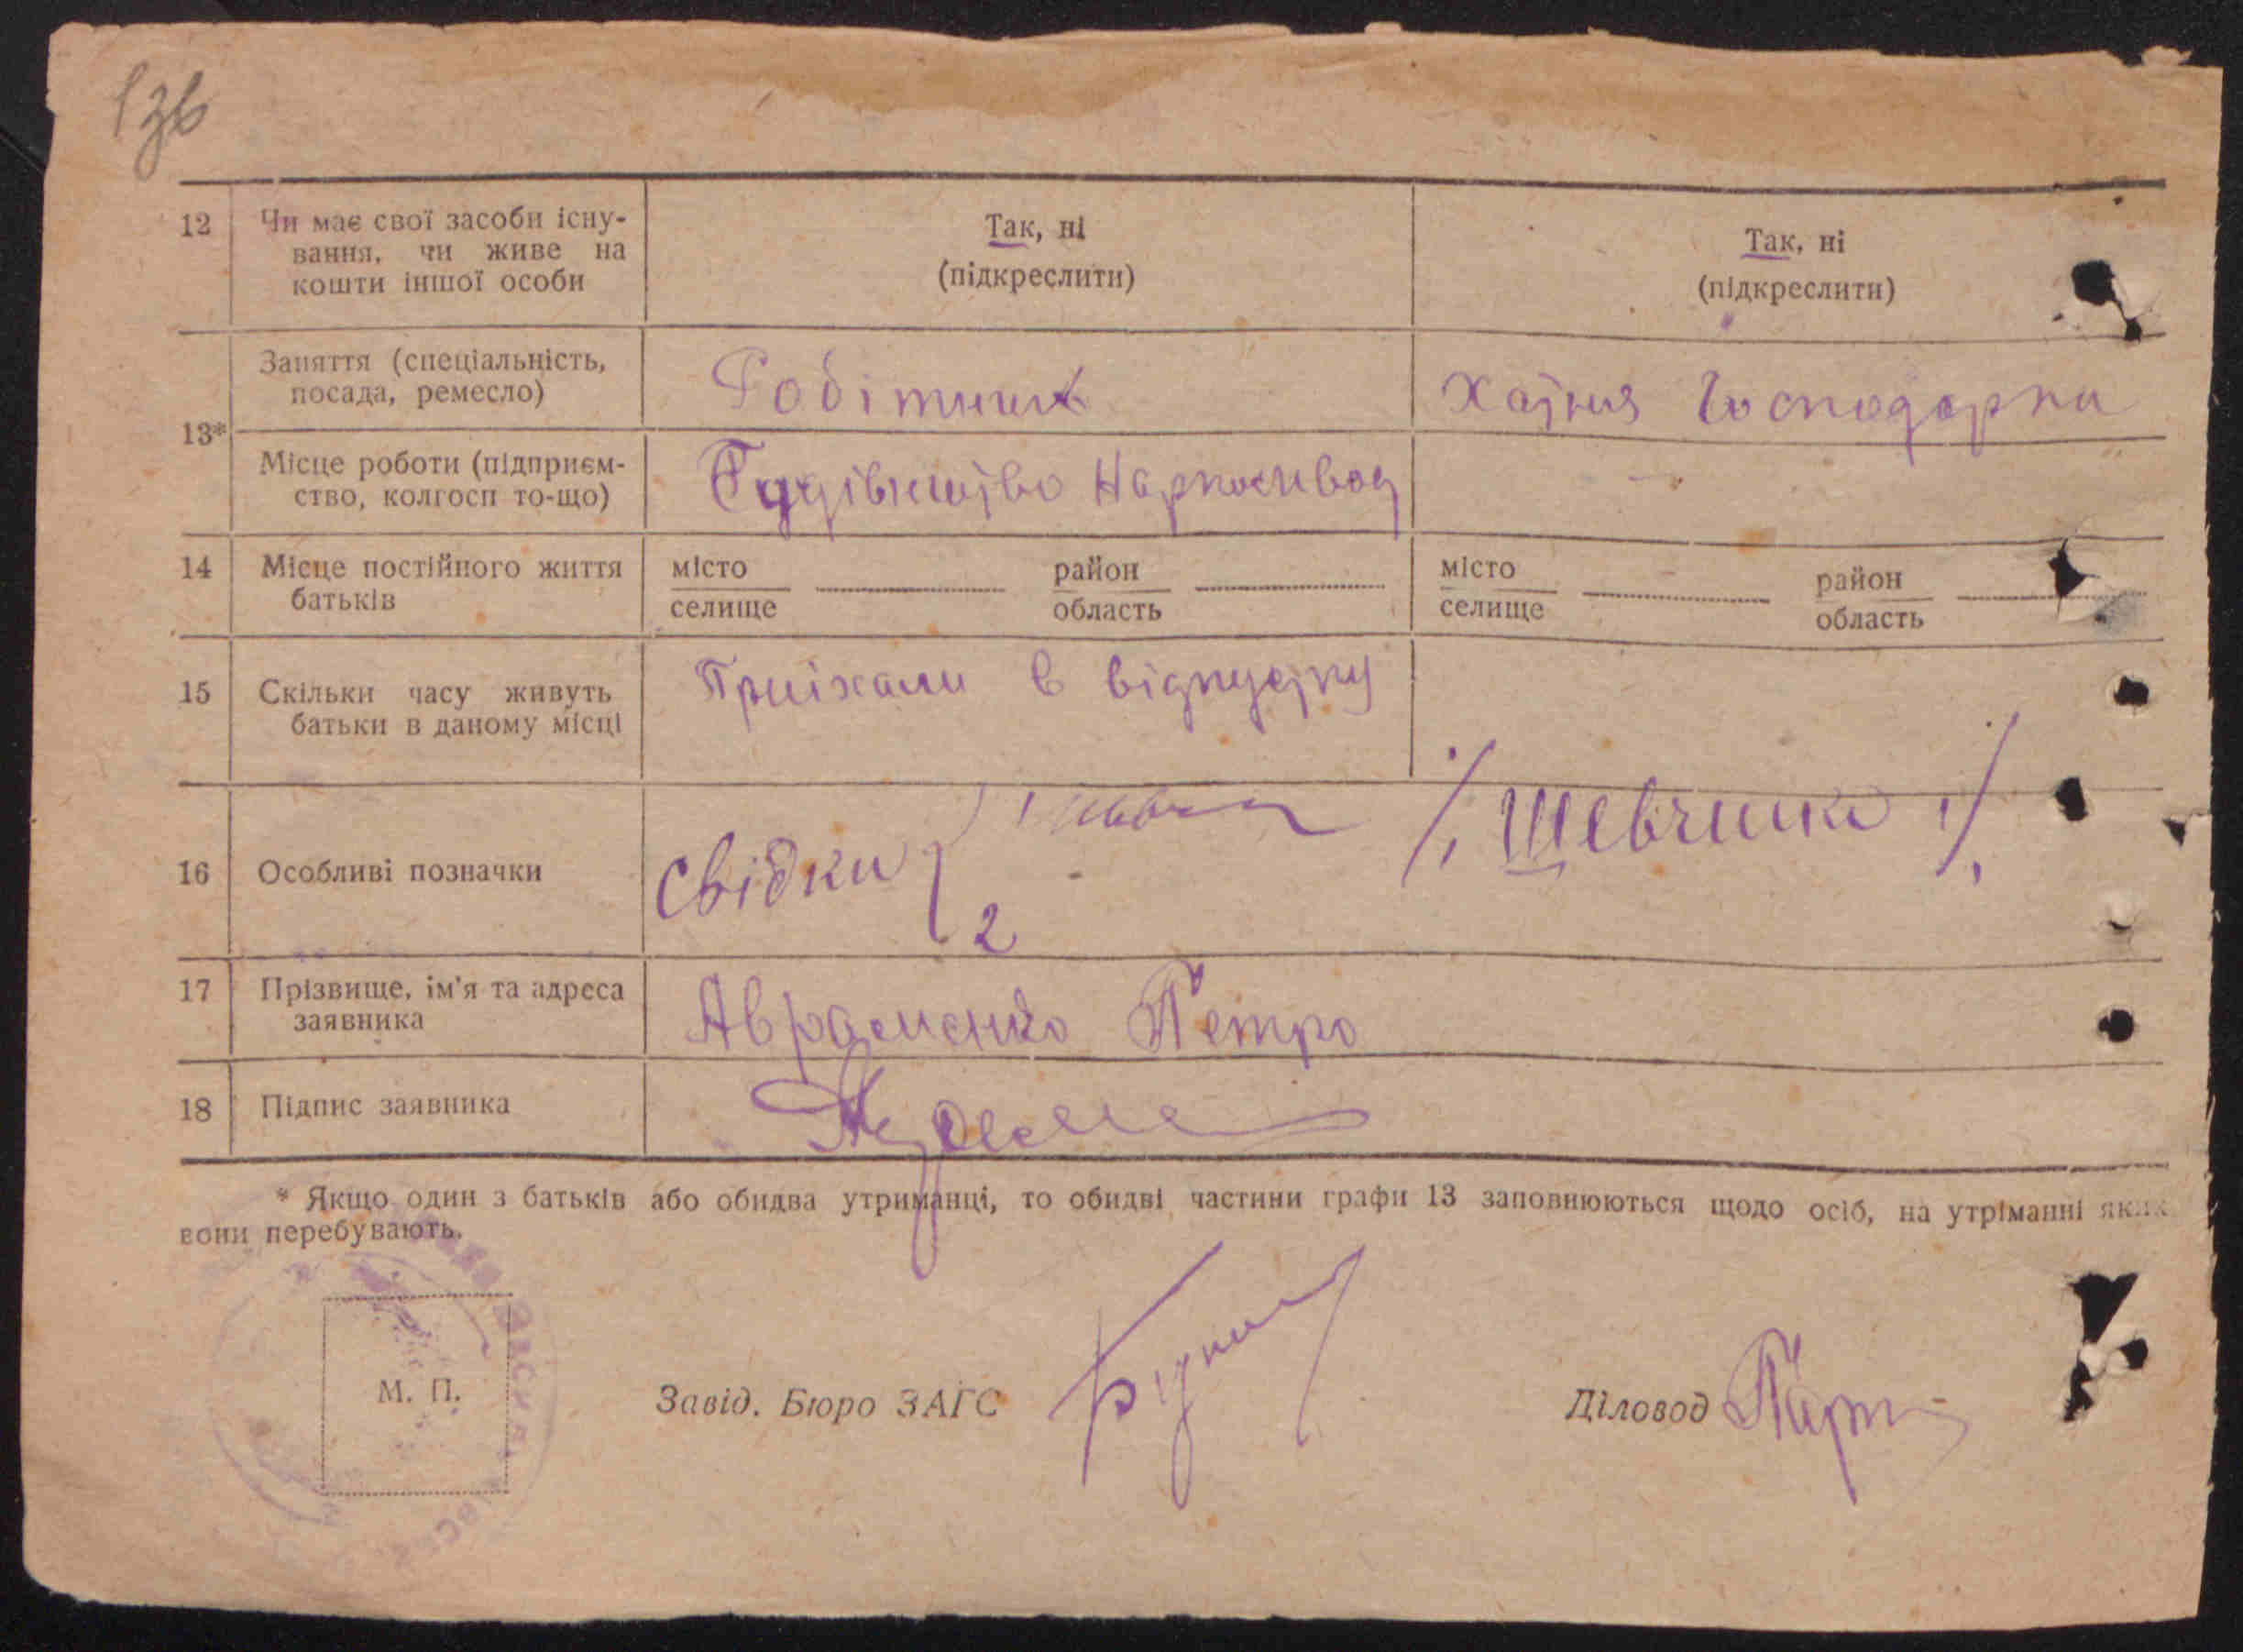 136
12 Чи має свої засоби існу-
вання, чи живе на
кошти іншої особи
Так, ні
(підкреслити)
Так, ні
(підкреслити)
13*
Заняття (спеціальність,
посада, ремесло)
Робітник
Хатня Господарка
Місце роботи (підприєм-
ство, колгосп то-що)
14 Місце постійного життя
батьків
місто
селище
район
область
місто
селище
район
область
15 Скільки часу живуть
батьки в даному місці
Приїхали в відпустку
16 Особливі позначки
Свідки
2
17 Прізвище, ім'я та адреса
заявника
Авраменко Петро
18 Підпис заявника
* Якщо один з батьків або обидва утриманці, то обидві частини графи 13 заповнюються щодо осіб, на утріманні яких
вони перебувають.
М. П.
Завід. Бюро ЗАГС
Діловод